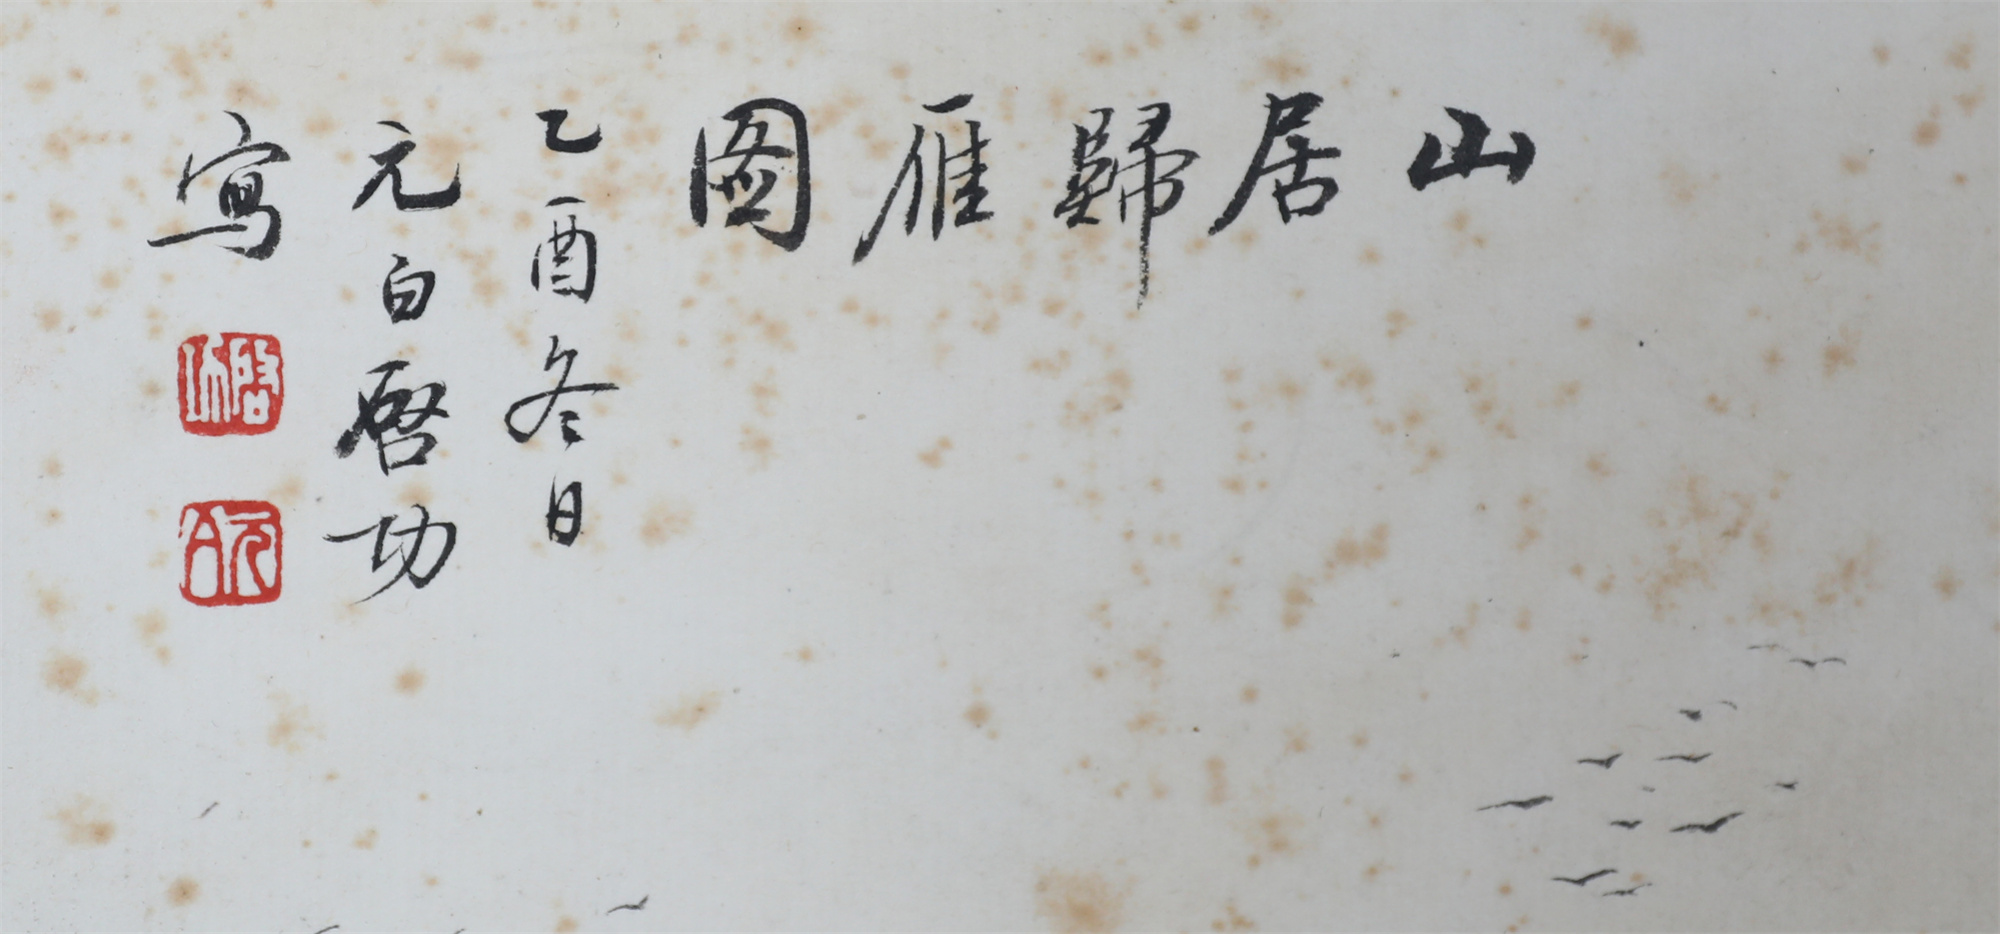 山居歸雁圖
乙酉冬日
元白啓功
寫
啓功
元白